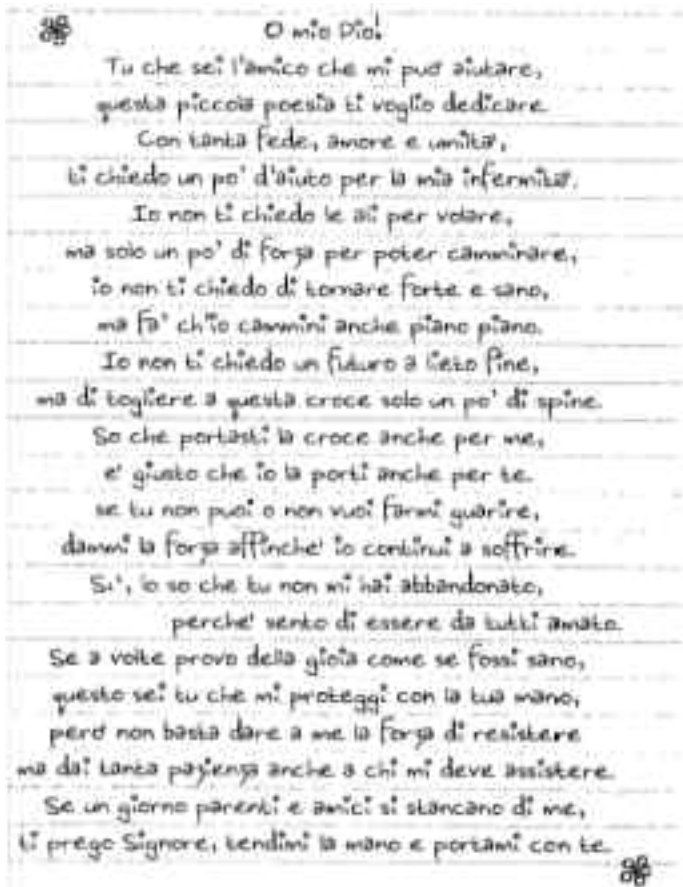 O mio Dio!
Tu che sei l'amico che mi può aiutare,
questa piccola poesia ti voglio dedicare.
Con tanta fede, amore e umiltà,
ti chiedo un po' d'aiuto per la mia infermità.
Io non ti chiedo le ali per volare,
ma solo un po' di forza per poter camminare,
io non ti chiedo di tornare forte e sano,
ma fa' ch'io cammini anche piano piano.
Io non ti chiedo un futuro a lieto fine,
ma di togliere a questa croce solo un po' di spine.
So che portasti la croce anche per me,
e' giusto che io la porti anche per te.
se tu non puoi o non vuoi farmi guarire,
dammi la forza affinche' io continui a soffrire.
Si', io so che tu non mi hai abbandonato,
perche' sento di essere da tutti amato.
Se a volte provo della gioia come se fossi sano,
questo sei tu che mi proteggi con la tua mano,
però non basta dare a me la forza di resistere
ma dai tanta pazienza anche a chi mi deve assistere.
Se un giorno parenti e amici si stancano di me,
ti prego Signore, tendimi la mano e portami con te.